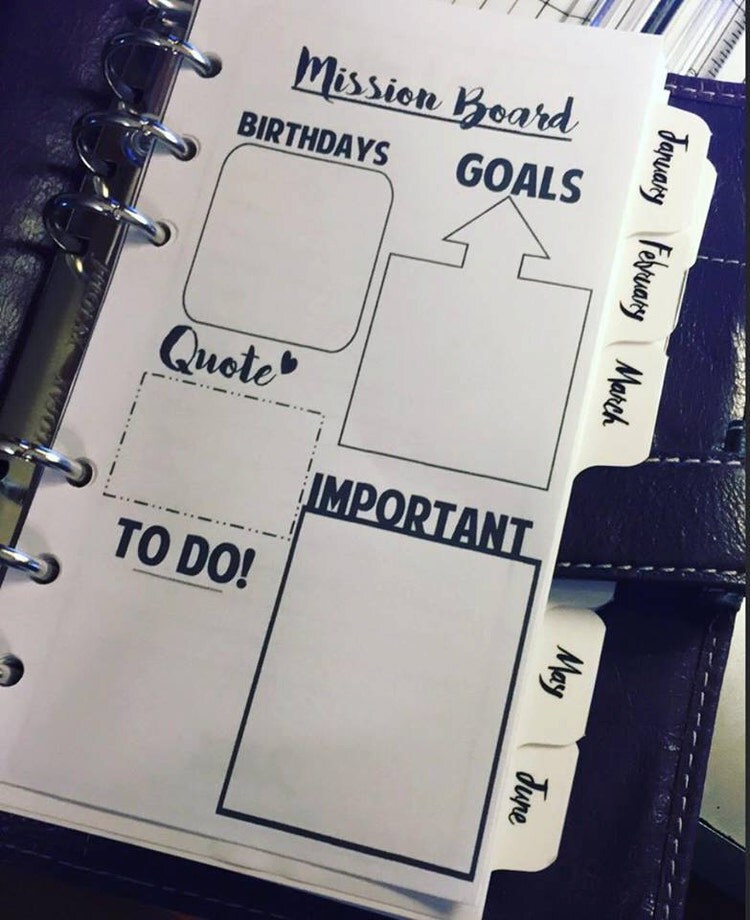 Mission Board
BIRTHDAYS
GOALS
Quote
IMPORTANT
TO DO!
January
February
March
May
June